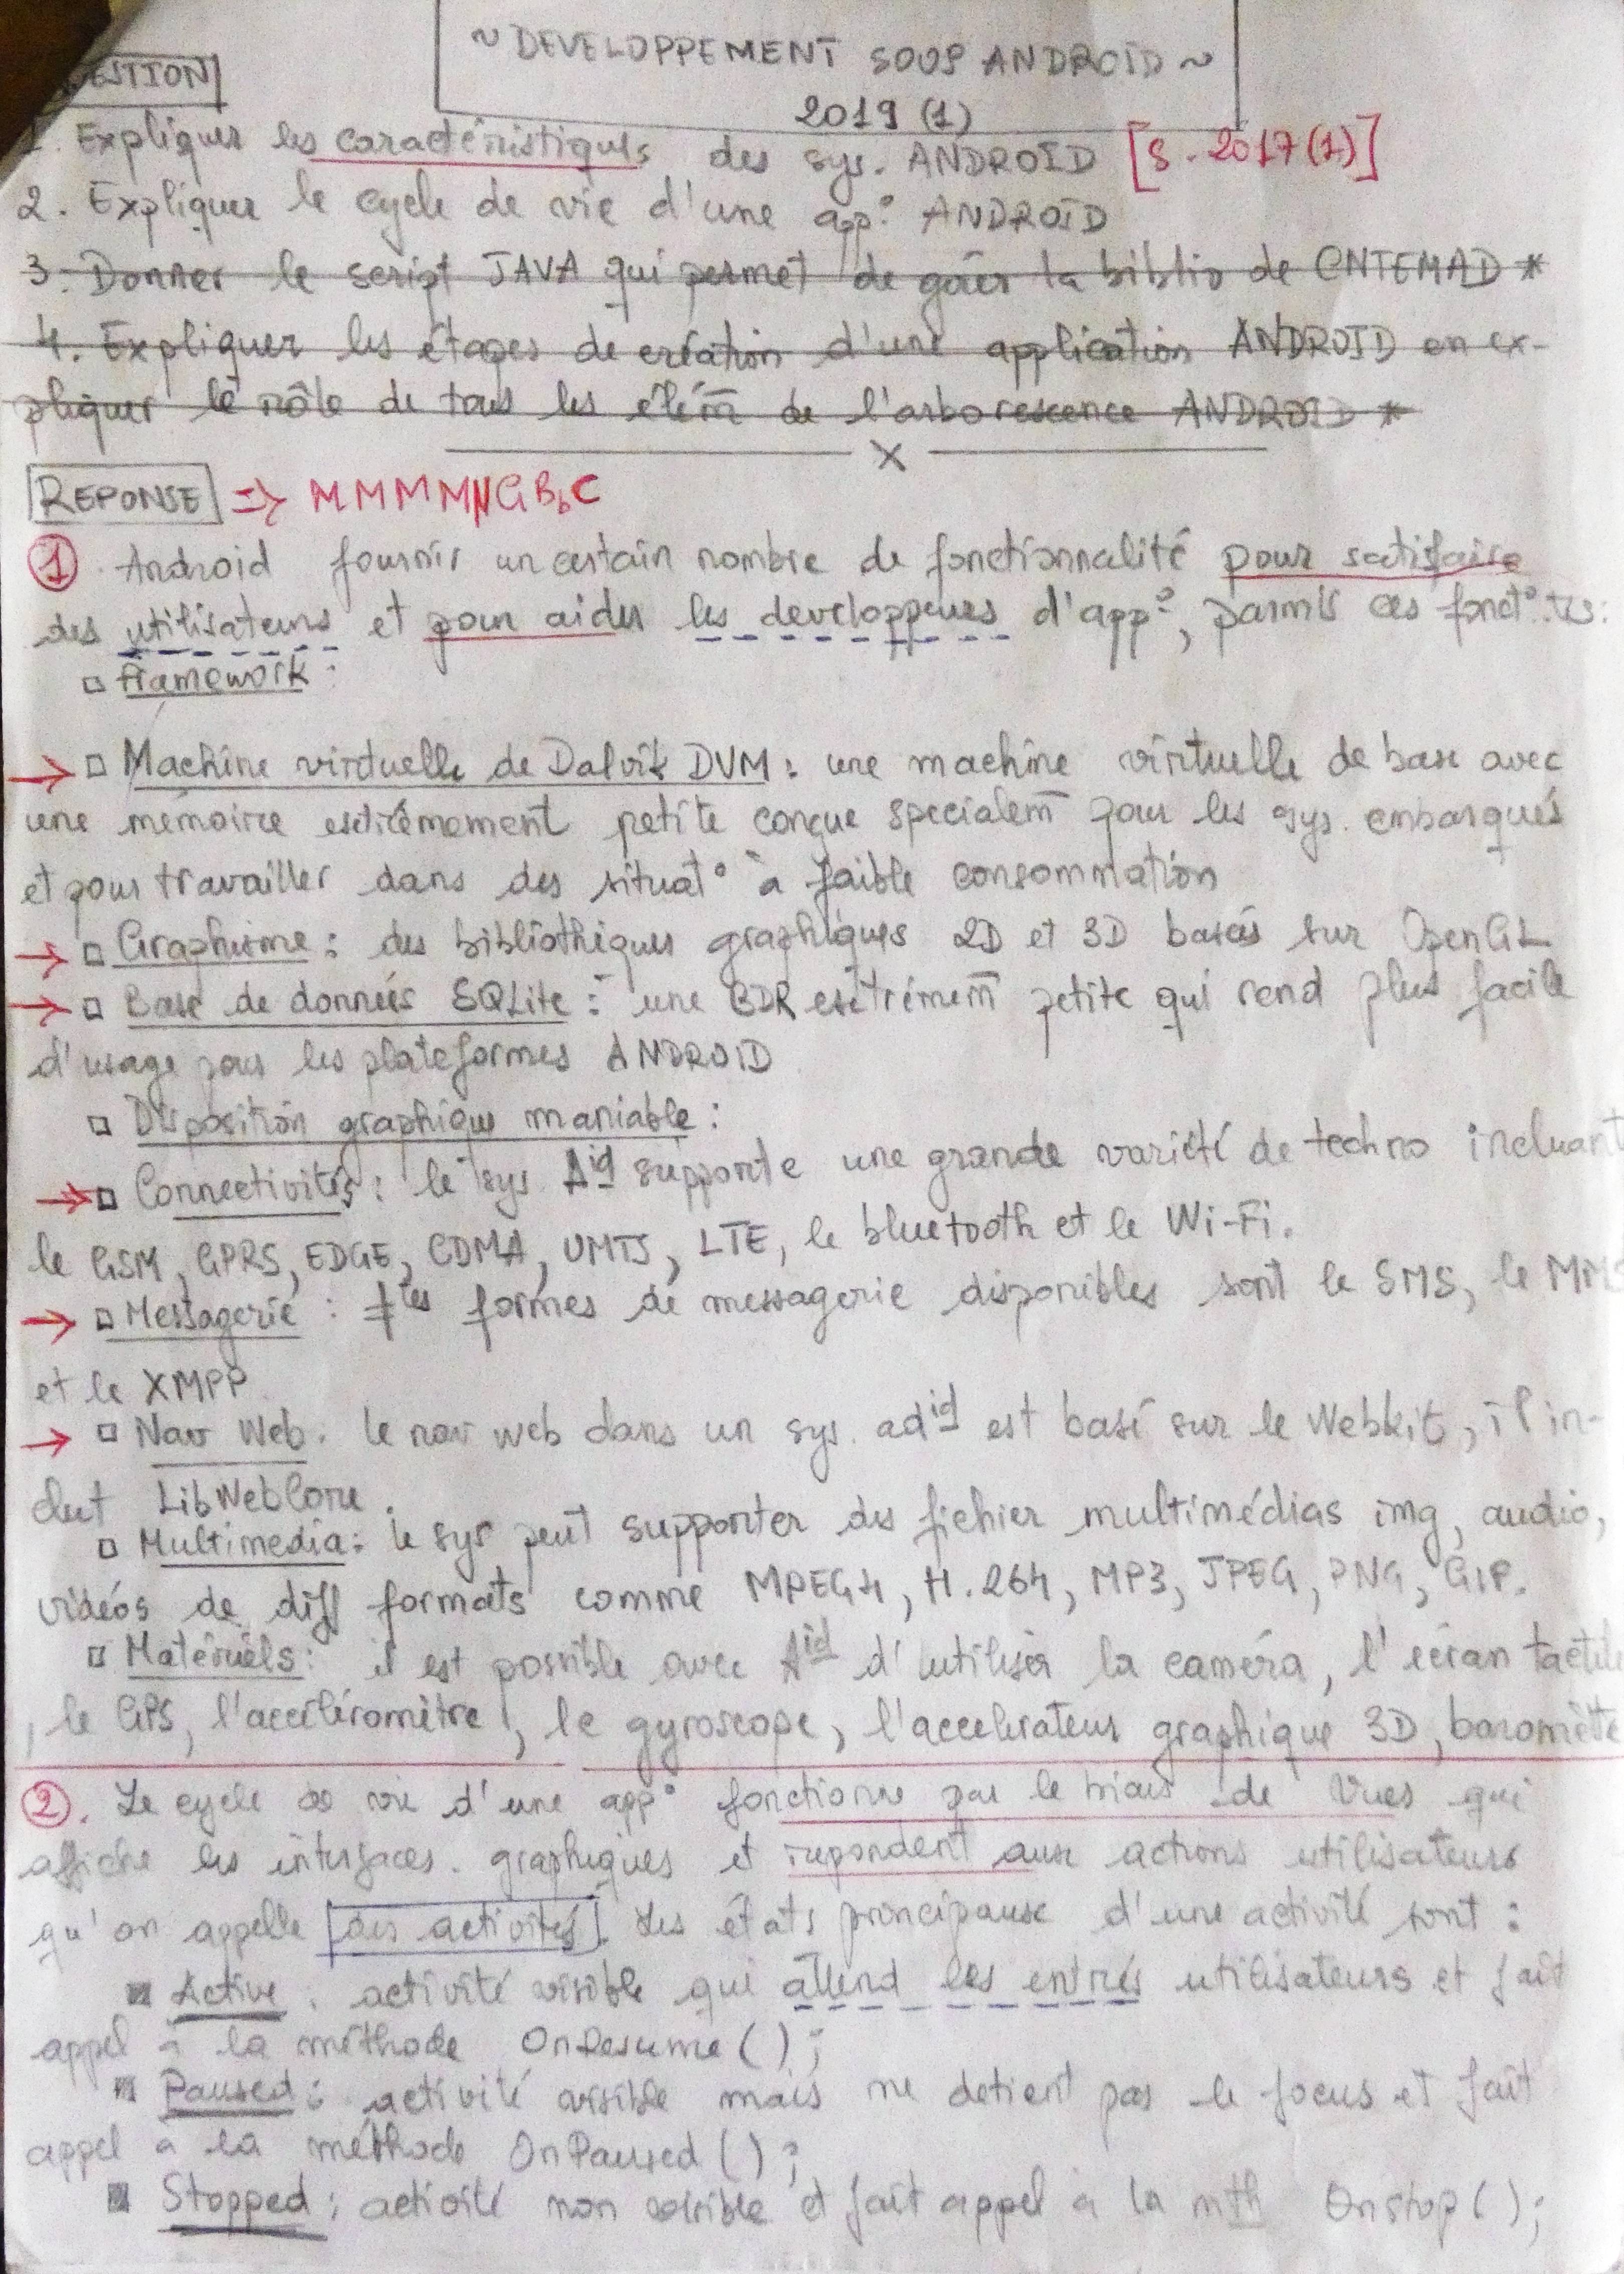 ~ DEVELOPPEMENT SOUS ANDROÏD ~
2019 (1)
ESTION
1. Expliquer les caractéristiques des sys. ANDROÏD [S. 2017 (1)]
2. Expliquer le cycle de vie d'une app° ANDROÏD
3. Donner le script JAVA qui permet de gérer la biblio de CNTEMAD *
4. Expliquer les étapes de création d'une application ANDROID en ex-
pliquer le rôle de tous les élém̄ de l'arborescence ANDROID *
X
REPONSE => MMMMNGBbC
① Android fournir un certain nombre de fonctionnalité pour satisfaire
des utilisateurs et pour aider les developpeurs d'app°, parmis ces fonct°.tés:
▫ framework :
→ ▫ Machine virtuelle de Dalvik DVM : une machine virtuelle de base avec
une mémoire extrêmement petite conçue specialem̄ pour les sys. embarqués
et pour travailler dans des situat° à faible consommation
→ ▫ Graphisme : des bibliothèques graphiques 2D et 3D basés sur OpenGL
→ ▫ Base de donnés SQLite : une BDR extrémem̄ petite qui rend plus facile
d'usage pour les plateformes ANDROID
▫ Disposition graphique maniable :
→ ▫ Connectivités : le sys Aid supporte une grande variété de techno incluant
le GSM, GPRS, EDGE, CDMA, UMTS, LTE, le bluetooth et le Wi-Fi.
→ ▫ Messagerie : ≠tes formes de messagerie disponibles sont le SMS, le MMS
et le XMPP
→ ▫ Nav Web. le nav web dans un sys. adid est basé sur le Webkit, il in-
clut LibWebCore.
▫ Multimedia : le sys peut supporter des fichier multimédias img, audio,
vidéos de diff formats comme MPEG4, H.264, MP3, JPEG, PNG, GIF.
▫ Matériels : il est possible avec Aid d'utiliser la caméra, l'écran tactile
, le GPS, l'accéléromètre, le gyroscope, l'accelerateur graphique 3D, baromètre
②. Le cycle de vie d'une app° fonctionne par le biais de Vues qui
affiche les interfaces graphiques et repondent aux actions utilisateurs
qu'on appelle des activités. Les états principaux d'une activité sont :
▪ Active : activité visible qui attend les entrés utilisateurs et fait
appel à la méthode OnResume ( ) ;
▪ Paused : activité visible mais ne detient pas le focus et fait
appel à la méthode OnPaused ( ) ;
▪ Stopped : activité non visible et fait appel à la mth OnStop ( ) ;